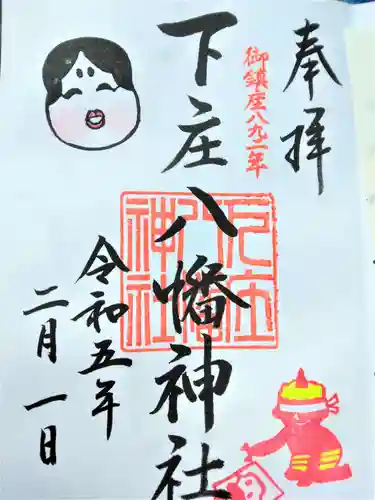 奉拝
御鎮座八九二年
下庄八幡神社
下庄八幡神社
令和五年
二月一日